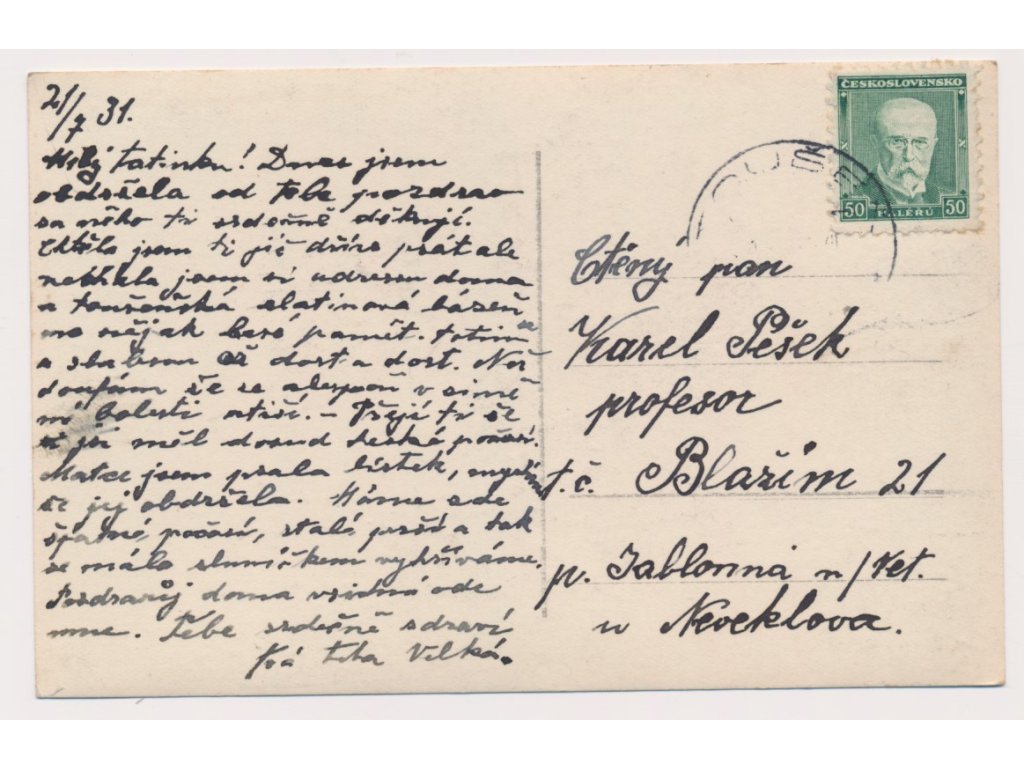 21/7 31.
Milý tatínku! Dnes jsem
obdržela od tebe pozdrav
za něho ti srdečně děkuji.
Chtěla jsem ti již dříve psát ale
jsem si adresu doma
a toušeňská slatinová lázeň
mo nějak bere paměť. totim
a slabou až dost a dost. Než
doufám že se alespoň v zimě
mé bolesti utiší. – Přeji ti že
si měl dosud hezké počasí.
Matce jsem psala lístek, myslím
že jej obdržela. Máme zde
špatné počasí, stále prší a tak
se málo sluníčkem vyhříváme.
Pozdravuj doma všichni ode
mne. Tebe srdečně zdraví
Tvá Velká.
ČESKOSLOVENSKO
50 HALÉRŮ 50
OUŠE
Ctěný pan
Karel Pešek
profesor
t.č. Blažim 21
p. Jablonná n/Vet.
u Neveklova.